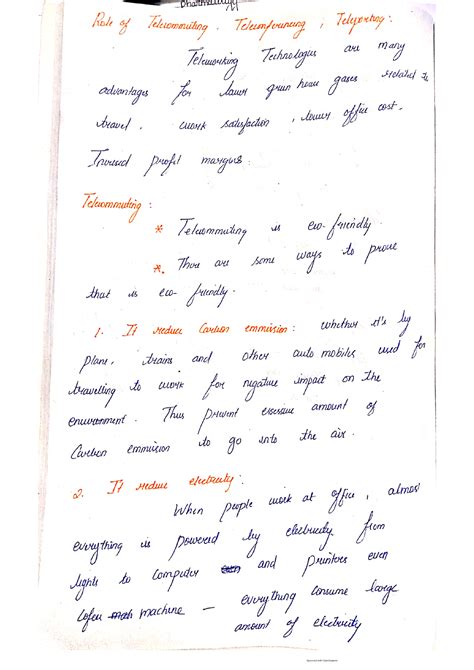 Role of Telecommuting, Teleconferencing, Teleporting:
Teleworking Technologies are many
advantages for lower green house gases related to
travel, work satisfaction, lower office cost.
Increased profit margins.
Telecommuting:
* Telecommuting is eco-friendly.
* There are some ways to prove
that is eco-friendly.
1. It reduce Carbon emmission: whether it's by
plane, trains and other auto mobiles used for
travelling to work for negative impact on the
environment. Thus prevent excessive amount of
Carbon emmission to go into the air.
2. It reduce electricity:
When people work at office, almos
everything is powered by electricity from
lights to computer and printers even
cofee machine – everything consume large
amount of electricity